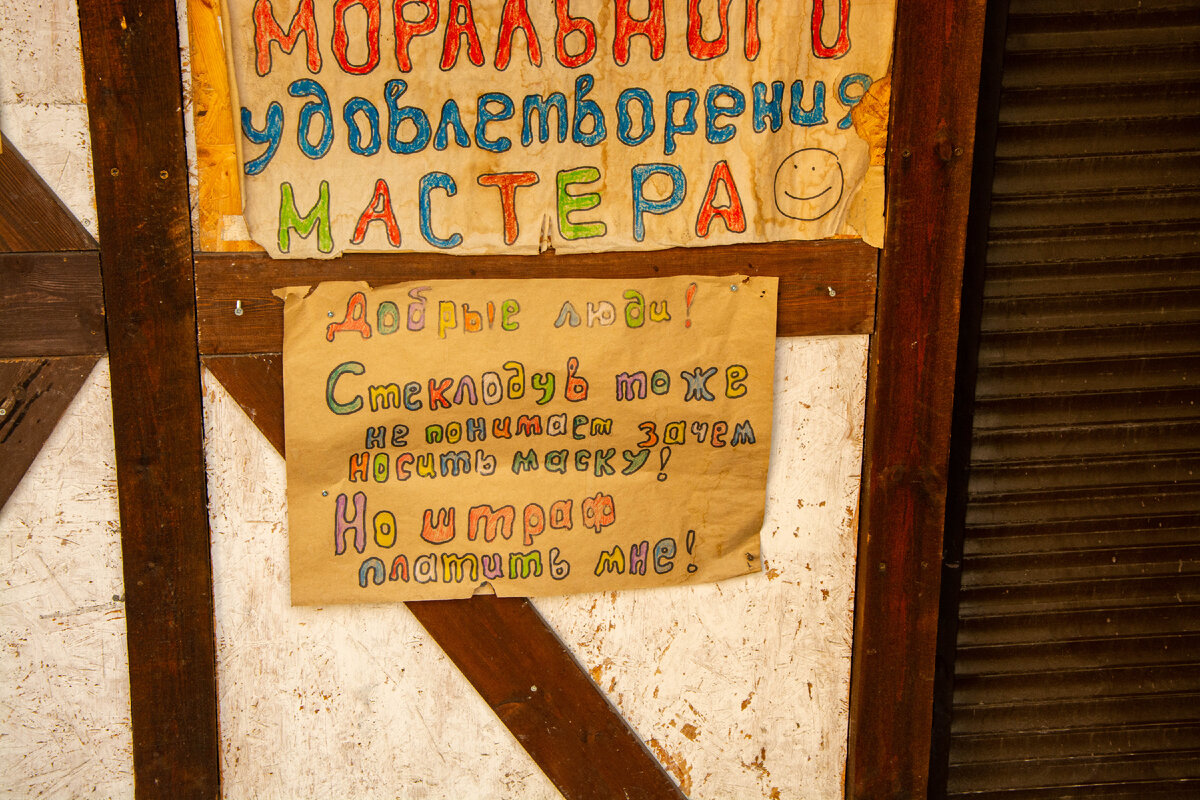 МОРАЛЬНОГО
удовлетворения
МАСТЕРА
Добрые люди!
Стеклодув тоже
не понимает зачем
носить маску!
Но штраф
платить мне!